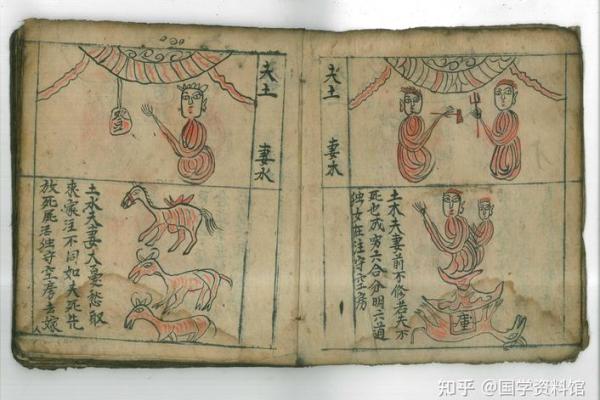 夫土
妻木
土木夫妻前不修若夫不
死也成穷六合分明六道
独女在注守空房
庫
夫土
妻水
土水夫妻大憂愁取
来家注不同如夫死先
放死尾活独守空房去嫁
知乎 @国学资料馆